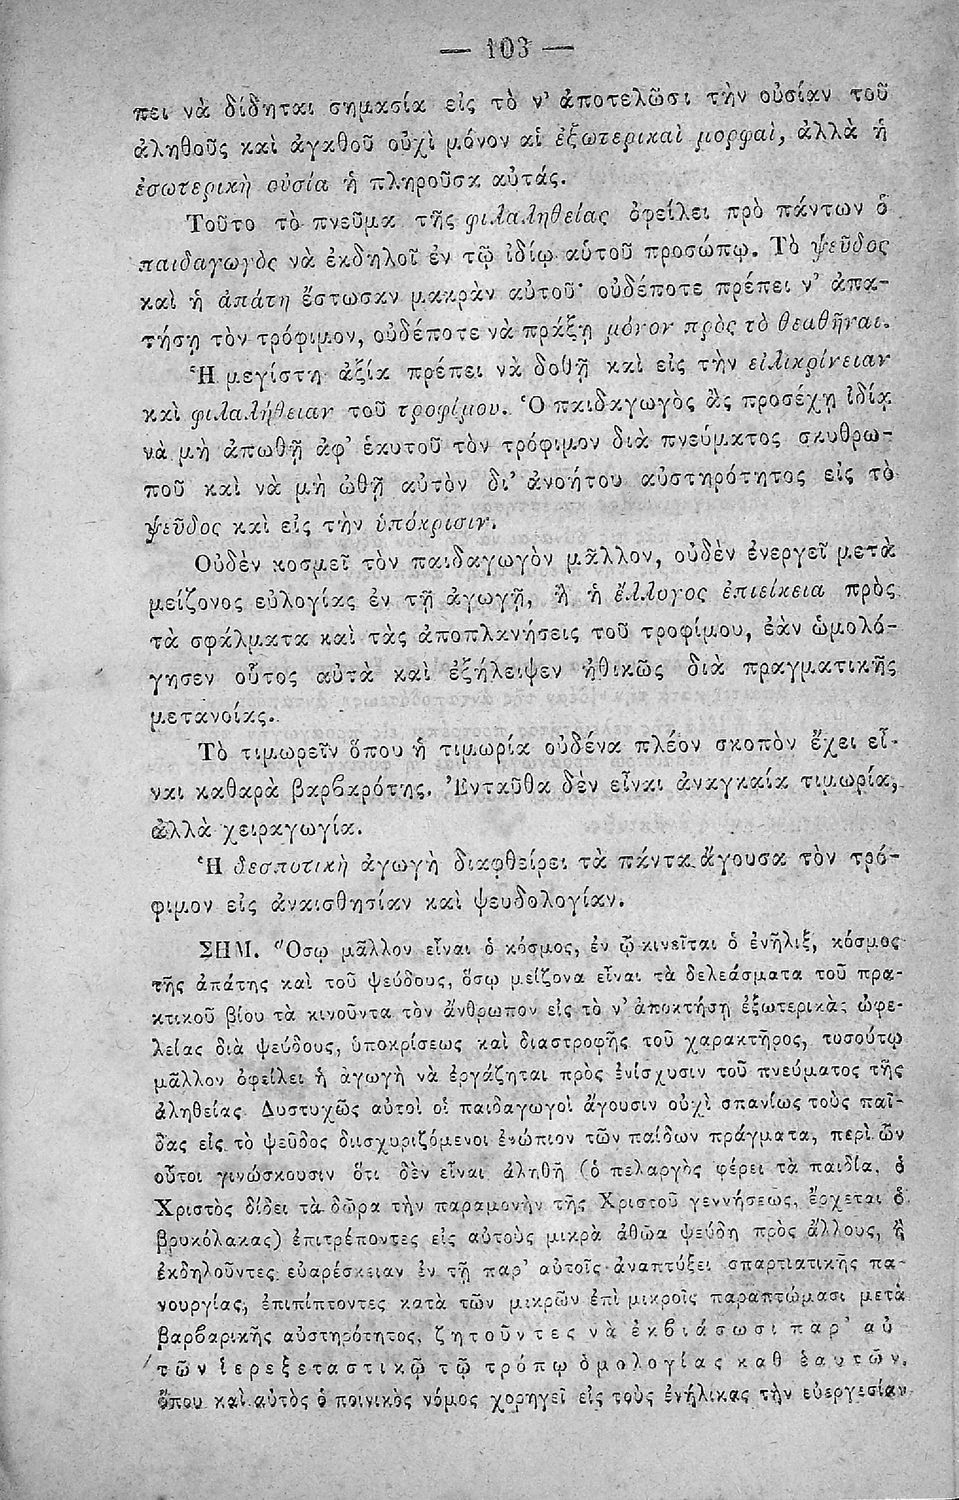 — 103 —
πει νὰ δίδηται σημασία εἰς τὸ ν' ἀποτελῶσι τὴν οὐσίαν τοῦ
ἀληθοῦς καὶ ἀγαθοῦ οὐχὶ μόνον αἱ ἐξωτερικαὶ μορφαὶ, ἀλλὰ ἡ
ἐσωτερικὴ οὐσία ἡ πληροῦσα αὐτάς.
Τοῦτο τὸ πνεῦμα τῆς φιλαληθείας ὀφείλει πρὸ πάντων ὁ
παιδαγωγὸς νὰ ἐκδηλοῖ ἐν τῷ ἰδίῳ αὑτοῦ προσώπῳ. Τὸ ψεῦδος
καὶ ἡ ἀπάτη ἔστωσαν μακρὰν αὐτοῦ· οὐδέποτε πρέπει ν' ἀπα-
τήσῃ τὸν τρόφιμον, οὐδέποτε νὰ πράξῃ μόνον πρὸς τὸ θεαθῆναι.
Ἡ μεγίστη ἀξία πρέπει νὰ δοθῇ καὶ εἰς τὴν εἰλικρίνειαν
καὶ φιλαλήθειαν τοῦ τροφίμου. Ὁ παιδαγωγὸς ἂς προσέχῃ ἰδίᾳ
νὰ μὴ ἀπωθῇ ἀφ' ἑαυτοῦ τὸν τρόφιμον διὰ πνεύματος σκυθρω-
ποῦ καὶ νὰ μὴ ὠθῇ αὐτὸν δι' ἀνοήτου αὐστηρότητος εἰς τὸ
ψεῦδος καὶ εἰς τὴν ὑπόκρισιν.
Οὐδὲν κοσμεῖ τὸν παιδαγωγὸν μᾶλλον, οὐδὲν ἐνεργεῖ μετὰ
μείζονος εὐλογίας ἐν τῇ ἀγωγῇ, ἢ ἡ ἔλλογος ἐπιείκεια πρὸς
τὰ σφάλματα καὶ τὰς ἀποπλανήσεις τοῦ τροφίμου, ἐὰν ὡμολό-
γησεν οὗτος αὐτὰ καὶ ἐξήλειψεν ἠθικῶς διὰ πραγματικῆς
μετανοίας.
Τὸ τιμωρεῖν ὅπου ἡ τιμωρία οὐδένα πλέον σκοπὸν ἔχει εἶ-
ναι καθαρὰ βαρβαρότης. Ἐνταῦθα δὲν εἶναι ἀναγκαία τιμωρία,
ἀλλὰ χειραγωγία.
Ἡ δεσποτικὴ ἀγωγὴ διαφθείρει τὰ πάντα ἄγουσα τὸν τρό-
φιμον εἰς ἀναισθησίαν καὶ ψευδολογίαν.
ΣΗΜ. Ὅσῳ μᾶλλον εἶναι ὁ κόσμος, ἐν ᾧ κινεῖται ὁ ἐνῆλιξ, κόσμος
τῆς ἀπάτης καὶ τοῦ ψεύδους, ὅσῳ μείζονα εἶναι τὰ δελεάσματα τοῦ πρα-
κτικοῦ βίου τὰ κινοῦντα τὸν ἄνθρωπον εἰς τὸ ν' ἀποκτήσῃ ἐξωτερικὰς ὠφε-
λείας διὰ ψεύδους, ὑποκρίσεως καὶ διαστροφῆς τοῦ χαρακτῆρος, τοσούτῳ
μᾶλλον ὀφείλει ἡ ἀγωγὴ νὰ ἐργάζηται πρὸς ἐνίσχυσιν τοῦ πνεύματος τῆς
ἀληθείας. Δυστυχῶς αὐτοὶ οἱ παιδαγωγοὶ ἄγουσιν οὐχὶ σπανίως τοὺς παῖ-
δας εἰς τὸ ψεῦδος διισχυριζόμενοι ἐνώπιον τῶν παίδων πράγματα, περὶ ὧν
οὗτοι γινώσκουσιν ὅτι δὲν εἶναι ἀληθῆ (ὁ πελαργὸς φέρει τὰ παιδία, ὁ
Χριστὸς δίδει τὰ δῶρα τὴν παραμονὴν τῆς Χριστοῦ γεννήσεως, ἔρχεται ὁ
βρυκόλακας) ἐπιτρέποντες εἰς αὐτοὺς μικρὰ ἀθῶα ψεύδη πρὸς ἄλλους, ἢ
ἐκδηλοῦντες εὐαρέσκειαν ἐν τῇ παρ' αὐτοῖς ἀναπτύξει σπαρτιατικῆς πα-
νουργίας, ἐπιπίπτοντες κατὰ τῶν μικρῶν ἐπὶ μικροῖς παραπτώμασι μετὰ
βαρβαρικῆς αὐστηρότητος, ζητοῦντες νὰ ἐκβιάσωσι παρ' αὐ
τῶν ἱερεξεταστικῷ τῷ τρόπῳ ὁμολογίας καθ ἑαυτῶν,
ὅπου καὶ αὐτὸς ὁ ποινικὸς νόμος χορηγεῖ εἰς τοὺς ἐνήλικας τὴν εὐεργεσίαν